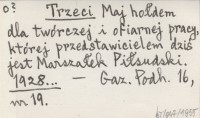 o? Trzeci Maj hołdem
dla twórczej i ofiarnej pracy,
której przedstawicielem dziś
jest Marszałek Piłsudski.
1928... — Gaz. Podh. 16,
nr 19.